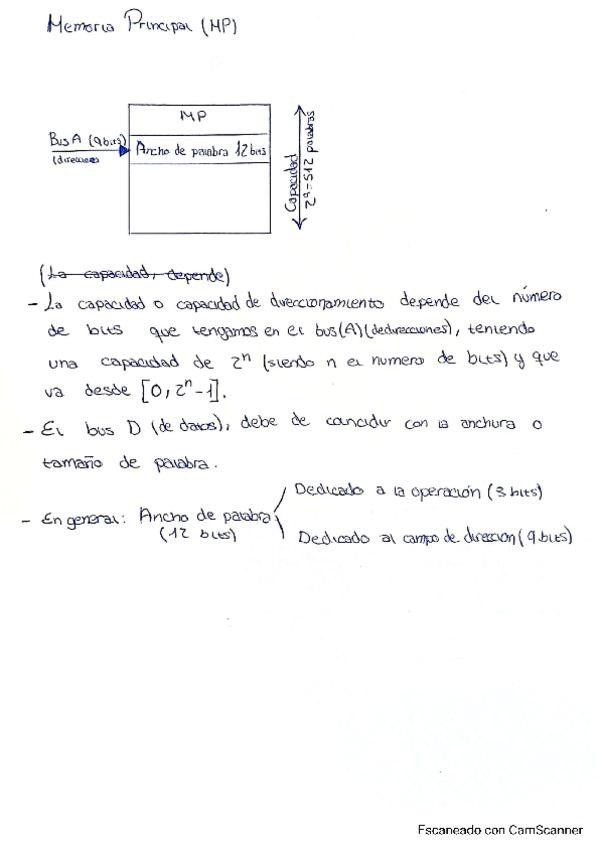 Memoria Principal (MP)
MP
Bus A (9bits)
(direcciones)
Ancho de palabra 12 bits
Capacidad
2⁹=512 palabras
(La capacidad, depende)
- La capacidad o capacidad de direccionamiento depende del número
de bits que tengamos en el bus(A)(dedirecciones), teniendo
una capacidad de 2ⁿ (siendo n el numero de bits) y que
va desde [0, 2ⁿ-1].
- El bus D (de datos), debe de coincidir con la anchura o
tamaño de palabra.
Dedicado a la operación (3 bits)
- En general: Ancho de palabra
(12 bits)
Dedicado al campo de direccion (9 bits)
Escaneado con CamScanner